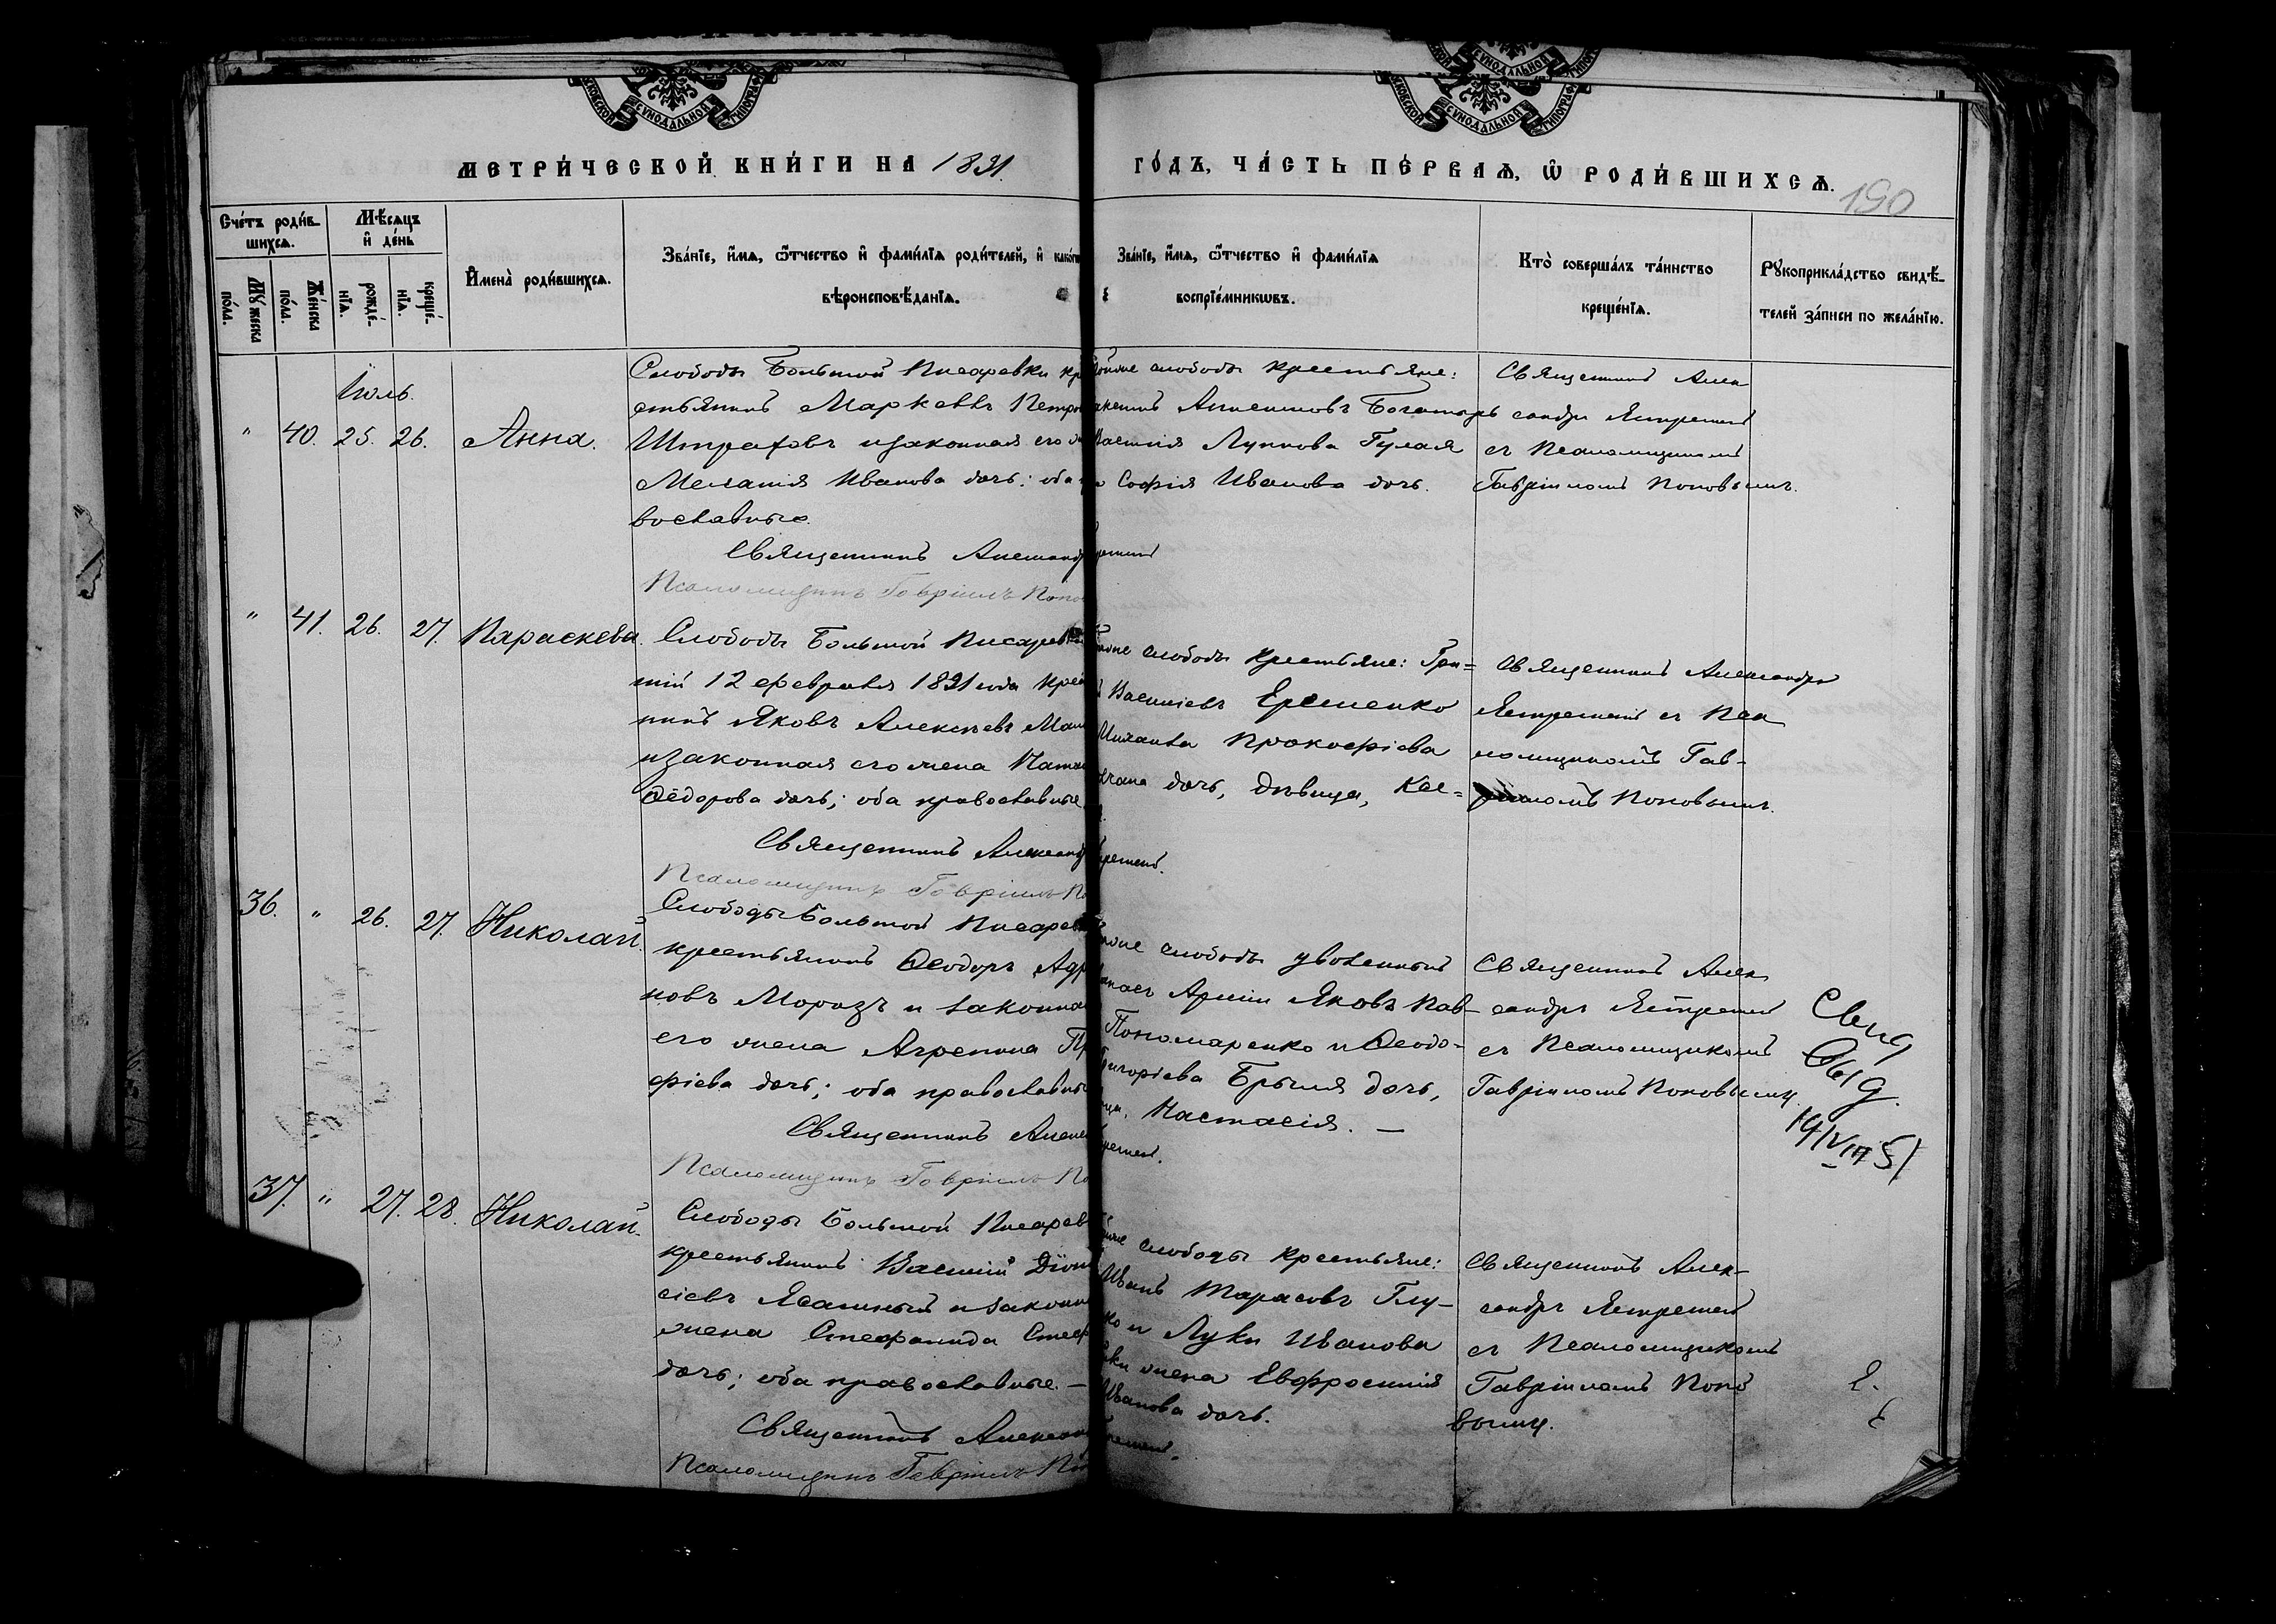 МЕТРИ́ЧЕСКОЙ КНИ́ГИ НА 1891.
ГО́ДЪ, ЧА́СТЬ ПЕ́РВАѦ, Ѡ РОДИ́ВШИХСѦ.
190
Сче́тъ роди́в-
шихсѧ.
Мѣ́сѧцъ
и҆ де́нь
Мꙋ́жеска
по́ла.
Же́нска
по́ла.
рожде́-
нїѧ.
креще́-
нїѧ.
И҆мена̀ роди́вшихсѧ.
Зва́нїе, и҆́мѧ, ѻ҆́тчество и҆ фами́лїѧ роди́телей, и҆ како́гѡ
вѣроисповѣ́данїѧ.
Зва́нїе, и҆́мѧ, ѻ҆́тчество и҆ фами́лїѧ
воспрїе́мникѡвъ.
Кто̀ соверша́лъ та́инство
креще́нїѧ.
Рꙋкоприкла́дство свидѣ́-
телей за́писи по жела́нїю.
Іюль.
" 40. 25. 26. Анна.
Слободы Большой Писаревки кре
стьянинъ Маркеллъ Петро
Штрафовъ и законная его
Меланія Иванова дочь: оба
вославные.
Священникъ Александ
Псаломщикъ Гавріилъ Попо
слободы крестьяне:
Богатырь
Луппова Гулая
Софія Иванова дочь.
Священникъ Алек
сандръ Ястремскій
съ Псаломщикомъ
Гавріиломъ Поповымъ.
" 41. 26. 27. Параскева.
Слободы Большой Писарев
шій 12 февраля 1891 года кре
нинъ Яковъ Алексѣевъ
и законная его жена
Ѳёдорова дочь; оба православные
Священникъ Александ
Псаломщикъ Гавріилъ По
слободы крестьяне: Гри=
Василіевъ Еременко
Прокофіева
дочь, дѣвица,
Священникъ Александръ
Ястремскій съ Пса
ломщикомъ Гав-
ріиломъ Поповымъ.
36. " 26. 27. Николай.
Слободы Большой Писарев
крестьянинъ Ѳеодоръ
новъ Морозъ и законная
его жена Агрепина Пр
фіева дочь; оба православны
Священникъ Алек
Псаломщикъ Гавріилъ По
слободы уволенный
Арміи Яковъ Пав-
Пономаренко и Ѳеодо-
Григоріева Брыля дочь,
Настасія. —
Священникъ Алек
сандръ Ястремскій
съ Псаломщикомъ
Гавріиломъ Поповымъ.
19/VIII 51
37. " 27. 28. Николай.
Слободы Большой Писарев
крестьянинъ Василій Діони
сіевъ Ясашный и законн
жена Стефанида Стеф
дочь; оба православные. —
Священникъ Алексан
Псаломщикъ Гавріилъ По
слободы крестьяне:
Иванъ Тарасовъ Глу-
ко и Луки Иванова
жена Евфросинія
Иванова дочь.
Священникъ Алек-
сандръ Ястремскій
съ Псаломщикомъ
Гавріиломъ Попо
вымъ.